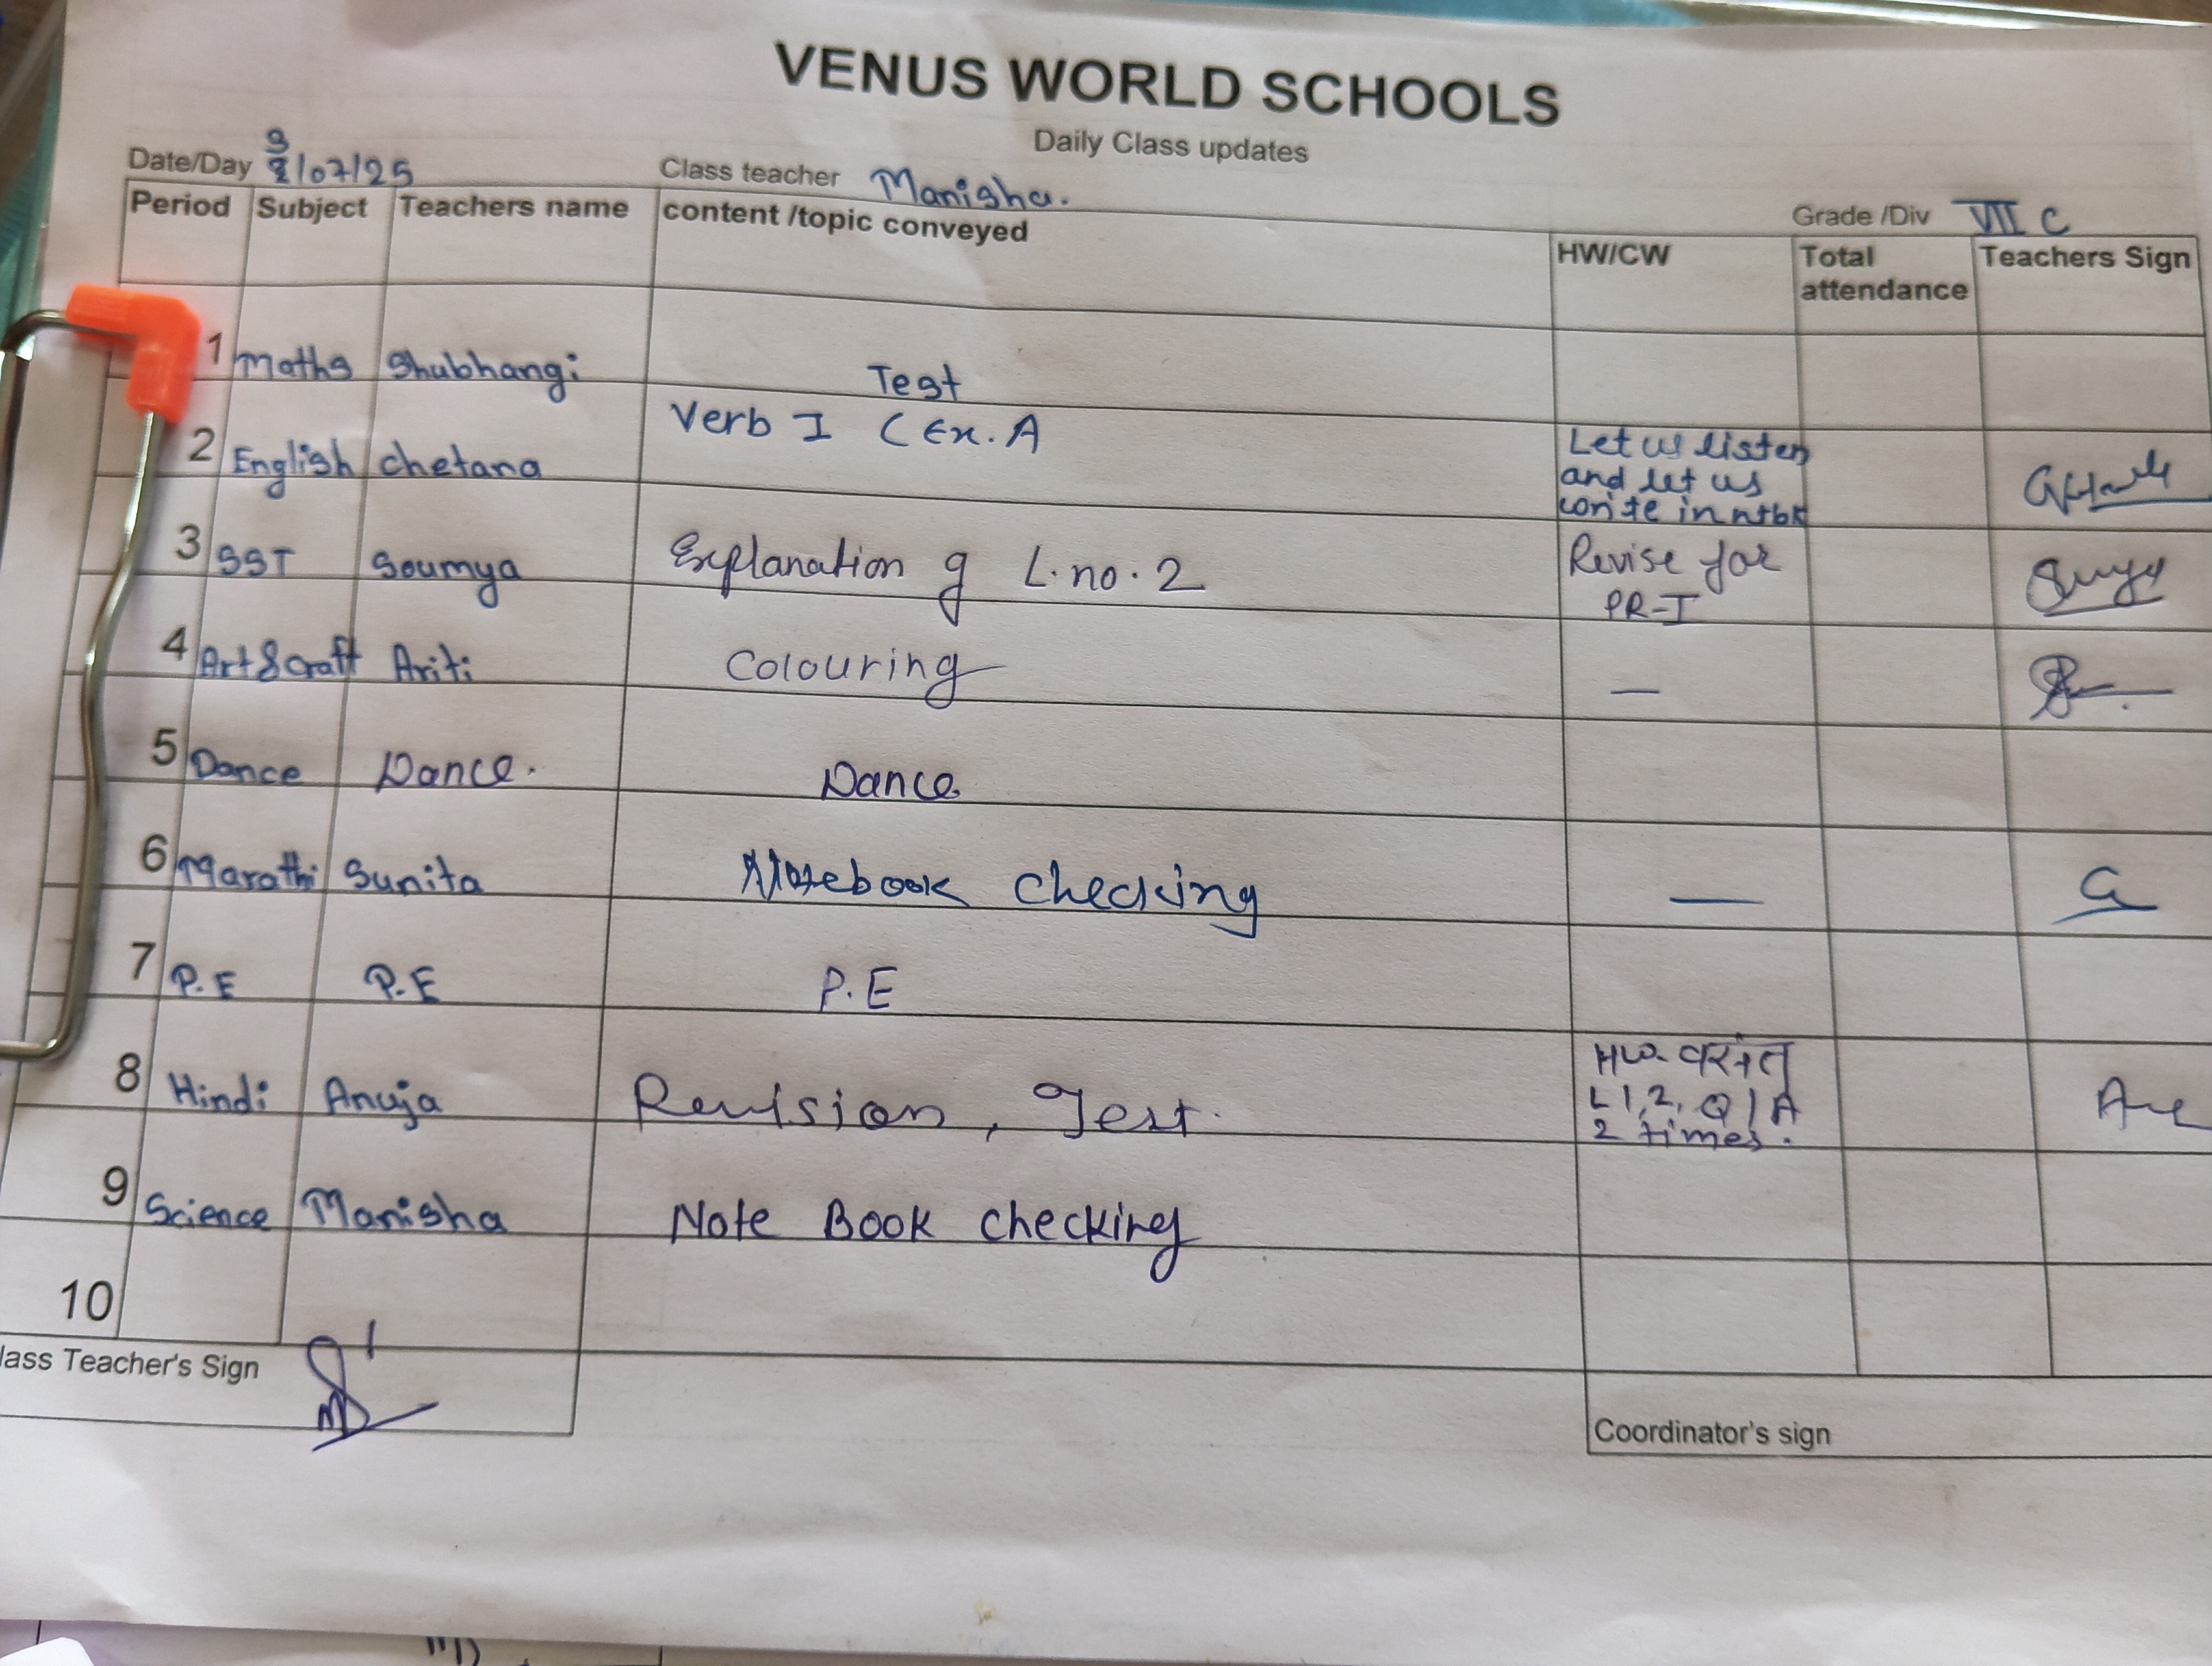 VENUS WORLD SCHOOLS
Daily Class updates
Date/Day 3/07/25 Class teacher Manisha. Grade /Div VII C
Period Subject Teachers name content /topic conveyed HW/CW Total attendance Teachers Sign
1 Maths Shubhangi Test
2 English chetana Verb I (Ex. A Let us listen
and let us
write in ntbk
3 SST Soumya Explanation of L. no. 2 Revise for
PR-I
4 Art & craft Ariti Colouring —
5 Dance Dance. Dance
6 Marathi Sunita Notebook checking —
7 P.E P.E P.E
8 Hindi Anuja Revision, Test. HW-
L 1,2, Q/A
2 times.
9 Science Manisha Note Book checking
10
lass Teacher's Sign
Coordinator's sign